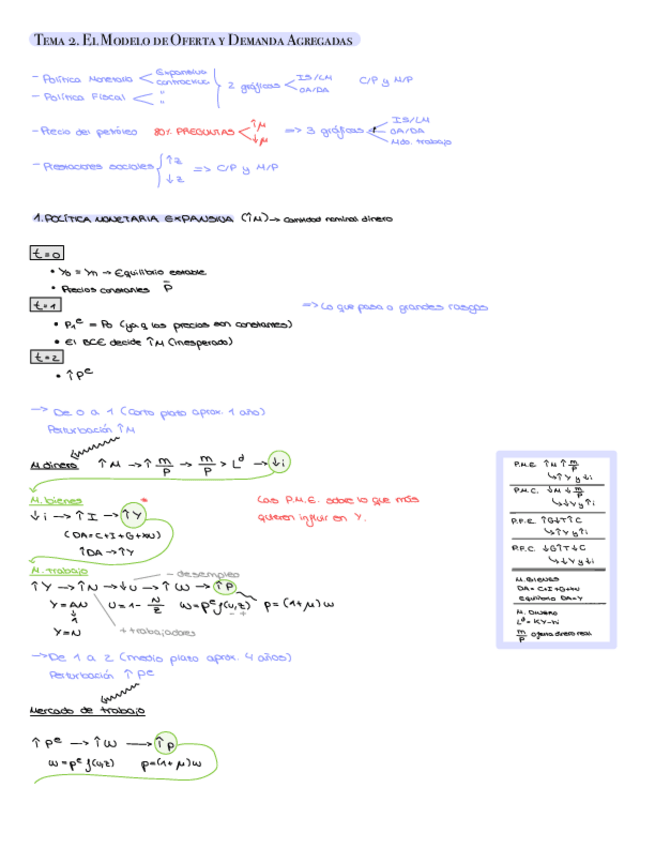 TEMA 2. EL MODELO DE OFERTA Y DEMANDA AGREGADAS
- Política Monetaria < Expansiva contractiva } 2 gráficas < IS/LM OA/DA C/P y M/P
- Política Fiscal < " "
- Precio del petróleo 80% PREGUNTAS < ↑μ ↓μ => 3 gráficas < IS/LM OA/DA Mdo. trabajo
- Relaciones sociales { ↑z ↓z => C/P y M/P
1. POLÍTICA MONETARIA EXPANSIVA (↑M) → cantidad nominal dinero
t=0
• Y₀ = Yn → Equilibrio estable
• Precios constantes P̄
t=1 => Lo que pasa a grandes rasgos
• P₁ᵉ = P₀ (ya q los precios son constantes)
• El BCE decide ↑M (inesperado)
t=2
• ↑Pᵉ
→ De 0 a 1 (Corto plazo aprox. 1 año)
Perturbación ↑M
M. dinero ↑M → ↑ M/P → M/P > Lᵈ → ↓i
M. bienes
↓i → ↑I → ↑Y
Las P.M.E. sobre lo que más
quieren influir en Y.
(DA = C+I+G+XN)
↑DA → ↑Y
M. trabajo
- desempleo
↑Y → ↑N → ↓U → ↑W → ↑P
Y=AN U=1-N/Z W=Pᵉ f(u,z) P=(1+μ)W
- +
1
Y=N
++trabajadores
→ De 1 a 2 (medio plazo aprox. 4 años)
Perturbación ↑Pᵉ
Mercado de trabajo
↑Pᵉ → ↑W → ↑P
W=Pᵉ f(u,z) P=(1+μ)W
P.M.E. ↑M ↑ M/P
↳ ↑Y y ↓i
P.M.C. ↓M ↓ M/P
↳ ↓Y y ↑i
P.F.E. ↑G ↓T ↑C
↳ ↑Y y ↑i
P.F.C. ↓G ↑T ↓C
↳ ↓Y y ↓i
M. BIENES
DA = C+I+G+XN
Equilibrio DA=Y
M. DINERO
Lᵈ = KY-hi
M/P oferta dinero real